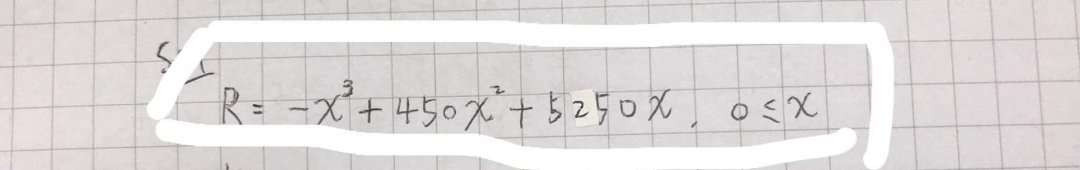 R = -x³ + 450x² + 5250x, 0 ≤ x